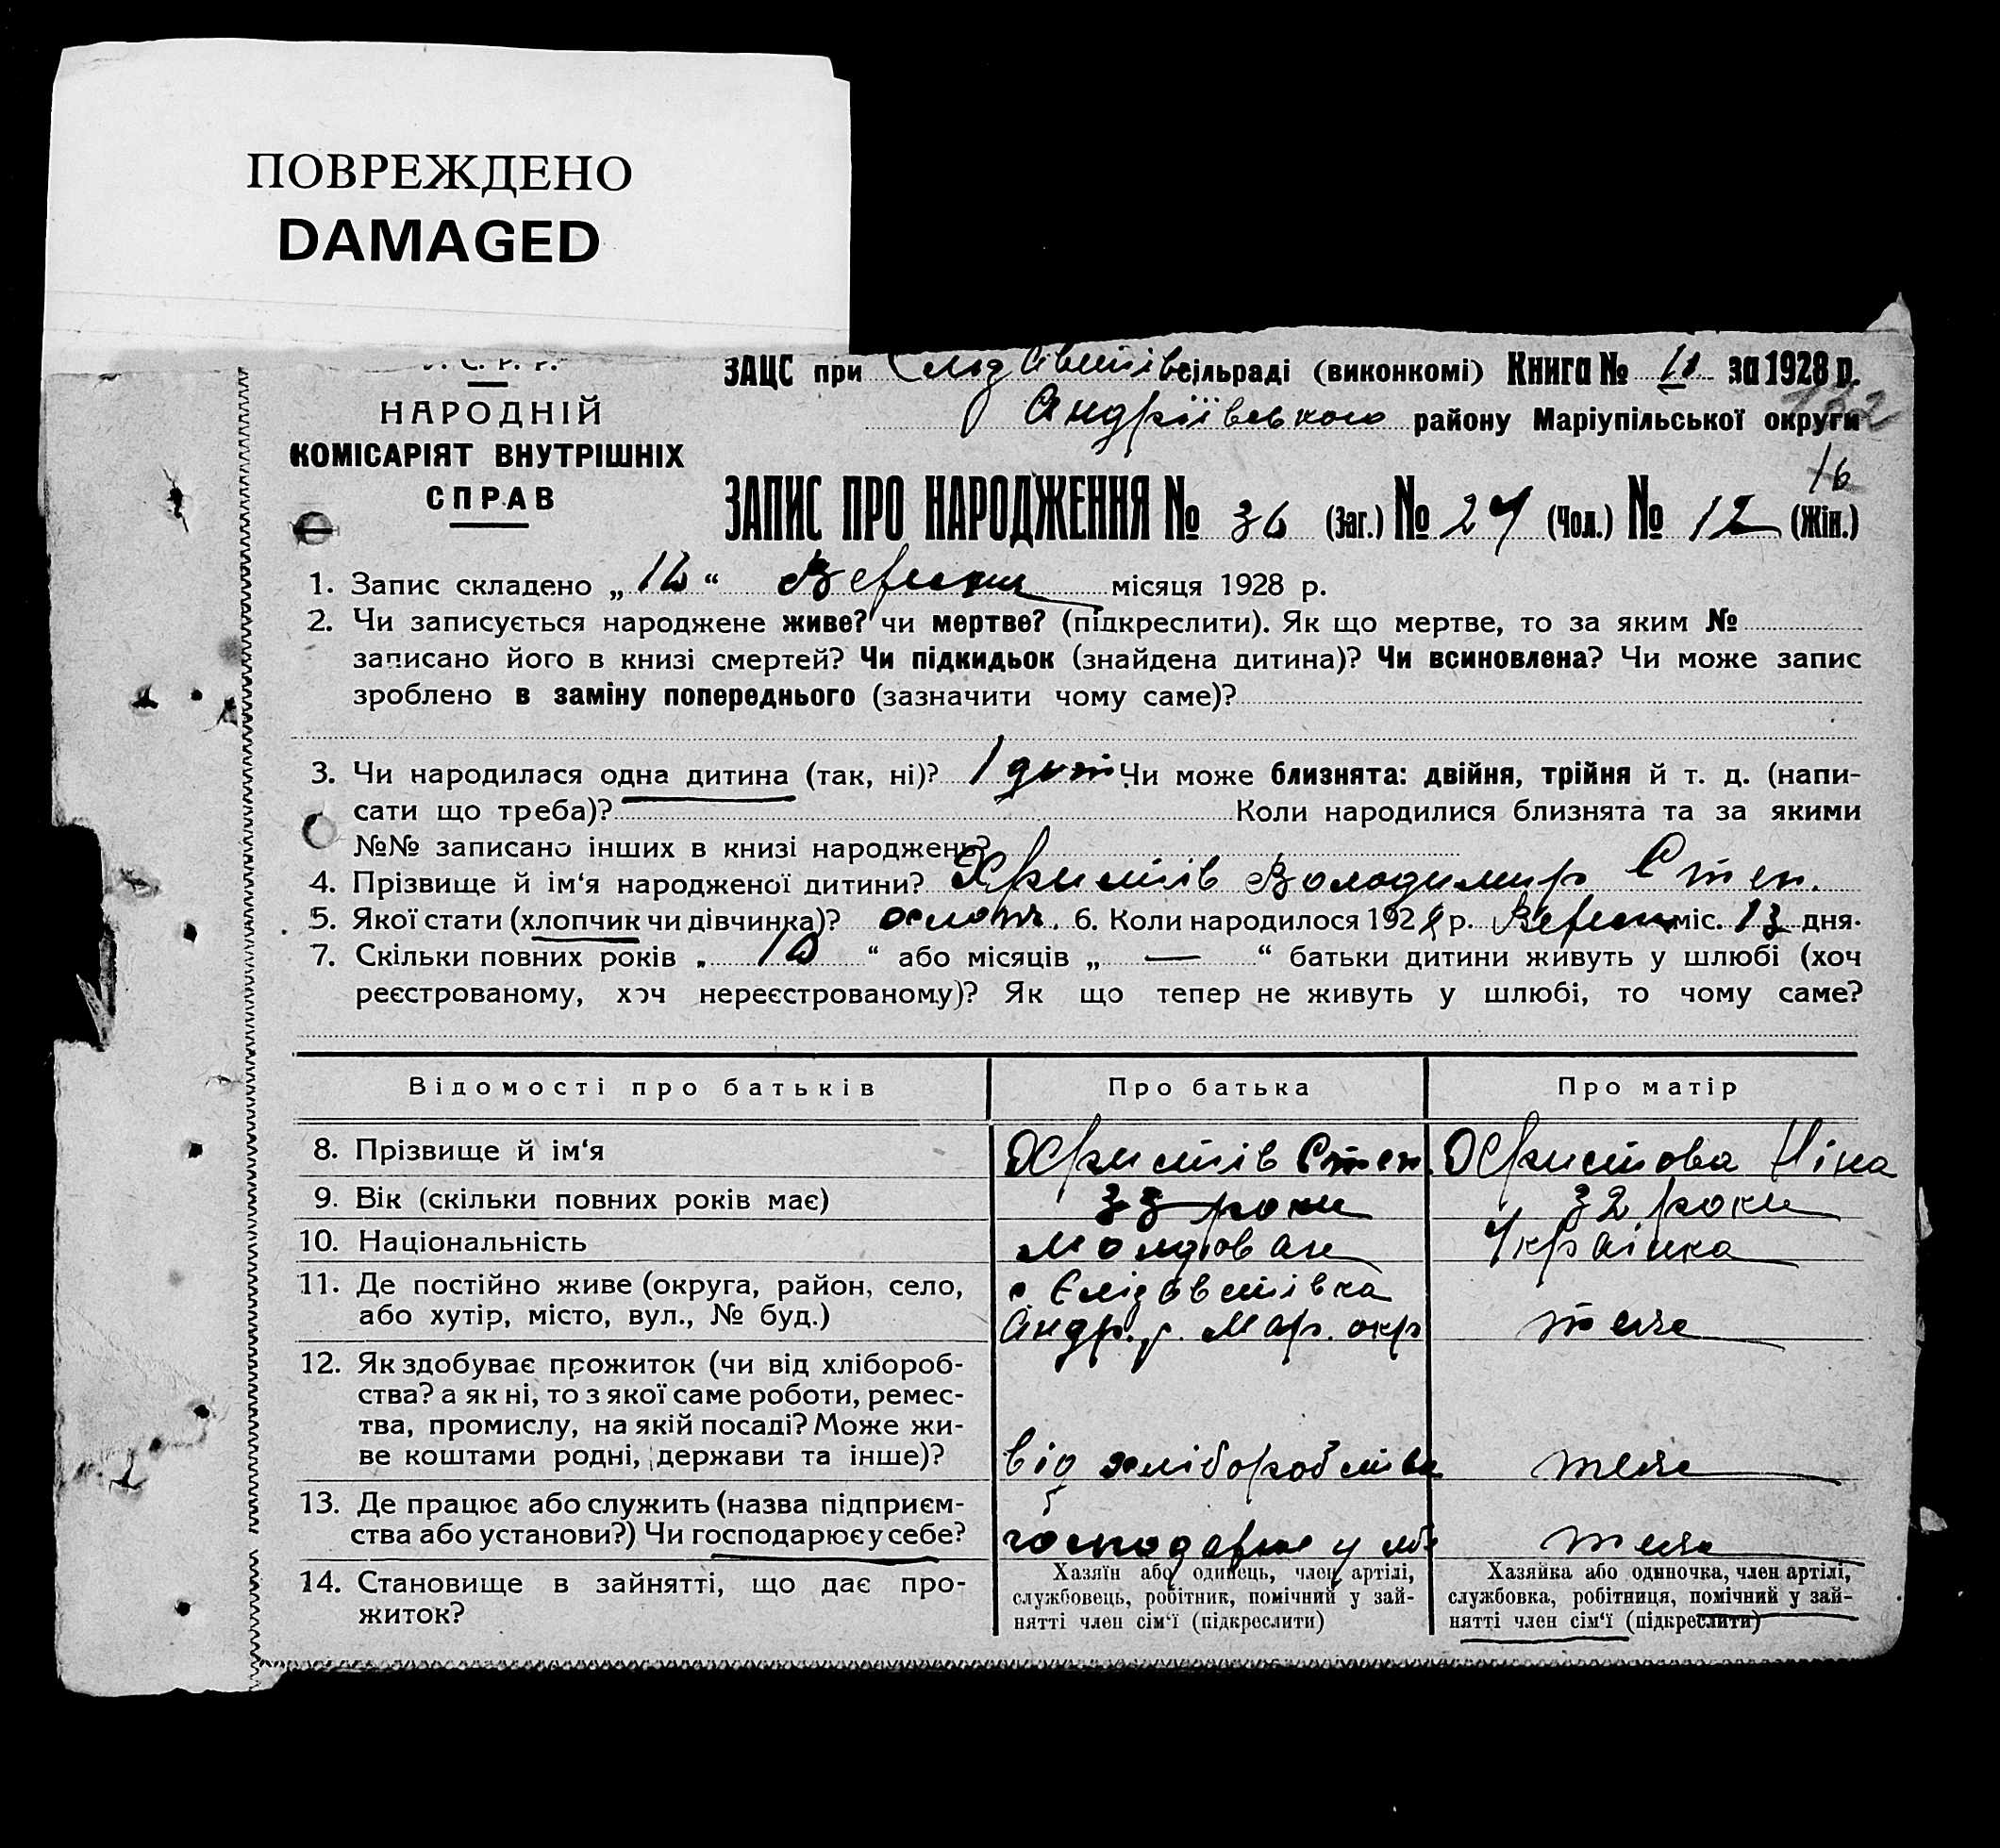 ПОВРЕЖДЕНО
DAMAGED
ЗАЦС при сільраді (виконкомі) Книга № за 1928 р.
Андріївського району Маріупільської округи
НАРОДНІЙ
КОМІСАРІЯТ ВНУТРІШНІХ
СПРАВ
16
ЗАПИС ПРО НАРОДЖЕННЯ № 36 (Заг.) № 24 (Чол.) № 12 (Жін.)
1. Запис складено „ 16 “ місяця 1928 р.
2. Чи записується народжене живе? чи мертве? (підкреслити). Як що мертве, то за яким №
записано його в книзі смертей? Чи підкидьок (знайдена дитина)? Чи всиновлена? Чи може запис
зроблено в заміну попереднього (зазначити чому саме)?
3. Чи народилася одна дитина (так, ні)? 1 дит Чи може близнята: двійня, трійня й т. д. (напи-
сати що треба)? Коли народилися близнята та за якими
№№ записано інших в книзі народжень?
4. Прізвище й ім‘я народженої дитини? Христів Володимир Степ.
5. Якої стати (хлопчик чи дівчинка)? хлопч. 6. Коли народилося 1928 р. Вересн міс. 13 дня.
7. Скільки повних років „ 10 “ або місяців „ — “ батьки дитини живуть у шлюбі (хоч
реєстрованому, хоч нереєстрованому)? Як що тепер не живуть у шлюбі, то чому саме?
Відомості про батьків Про батька Про матір
8. Прізвище й ім‘я Христів Степ. Христова Ніна
9. Вік (скільки повних років має) 33 роки 32 роки
10. Національність Молдован Українка
11. Де постійно живе (округа, район, село, с Єлізаветівка
або хутір, місто, вул., № буд.) Андр. р. Мар. окр теж
12. Як здобуває прожиток (чи від хлібороб-
ства? а як ні, то з якої саме роботи, ремес-
тва, промислу, на якій посаді? Може жи-
ве коштами родні, держави та інше)? від хліборобства теж
13. Де працює або служить (назва підприєм-
ства або установи?) Чи господарює у себе? господарює у теж
14. Становище в зайнятті, що дає про-
житок?
Хазяїн або одинець, член артілі,
службовець, робітник, помічний у зай-
нятті член сім‘ї (підкреслити)
Хазяйка або одиночка, член артілі,
службовка, робітниця, помічний у зай-
нятті член сім‘ї (підкреслити)